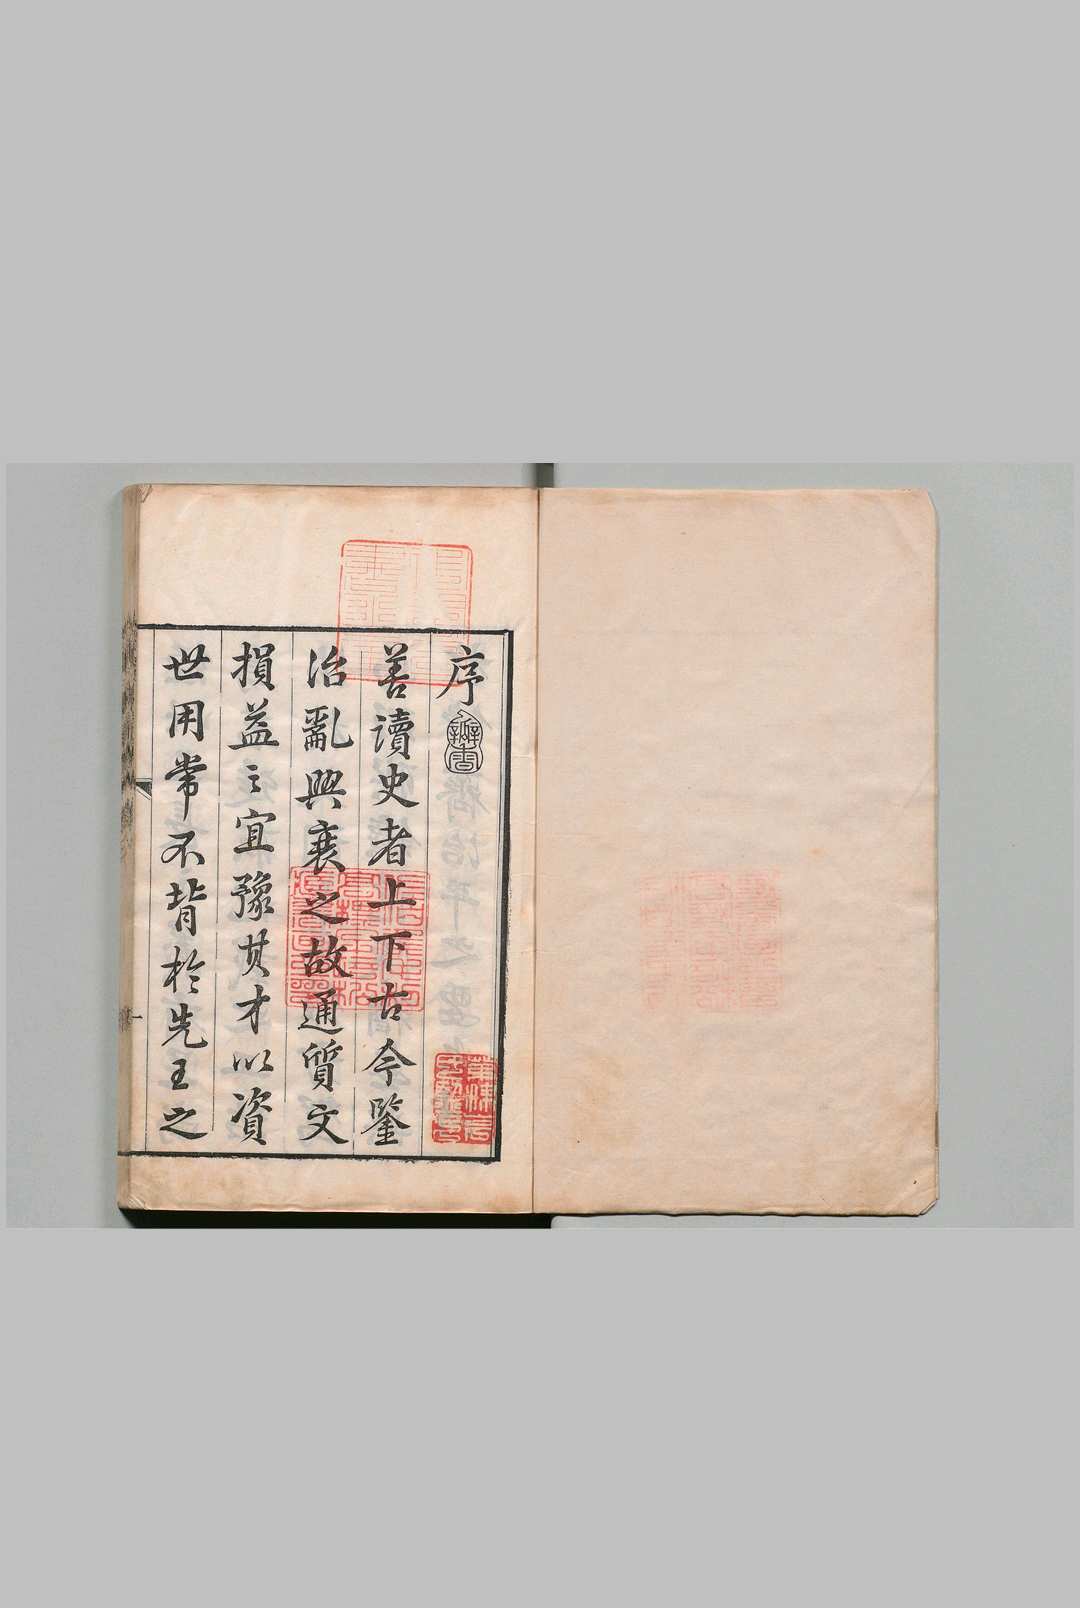 序
善讀史者上下古今鑒
治亂興衰之故通質文
損益之宜豫其才以資
世用常不背於先王之